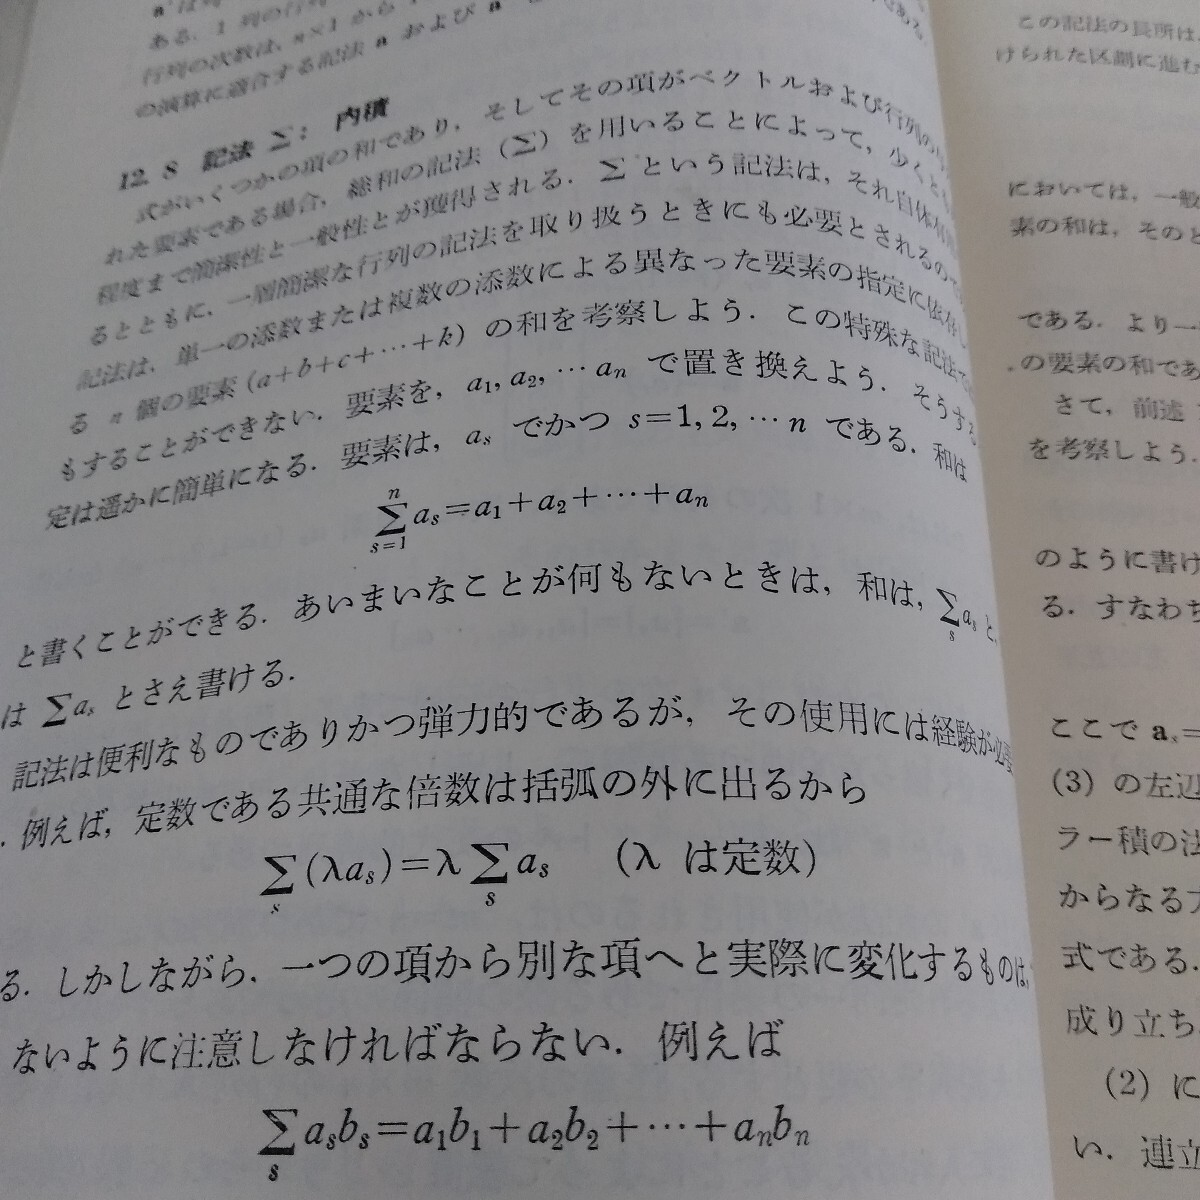 ある. 1 列の行列
行列の次数は, n×1 から
の演算に適合する記法 a および a
12. 8 記法 Σ: 内積
式がいくつかの項の和であり, そしてその項がベクトルおよび行列の
れた要素である場合, 総和の記法 (Σ) を用いることによって, 少くとも
程度まで簡潔性と一般性とが獲得される. Σ という記法は, それ自体
るとともに, 一層簡潔な行列の記法を取り扱うときにも必要とされるので
記法は, 単一の添数または複数の添数による異なった要素の指定に依存し
る n 個の要素 (a+b+c+…+k) の和を考察しよう. この特殊な記法で
もすることができない. 要素を, a₁, a₂, … aₙ で置き換えよう. そうする
定は遥かに簡単になる. 要素は, aₛ でかつ s=1, 2, … n である. 和は
n
Σ aₛ=a₁+a₂+…+aₙ
s=1
と書くことができる. あいまいなことが何もないときは, 和は, Σ aₛ と,
s
は Σaₛ とさえ書ける.
記法は便利なものでありかつ弾力的であるが, その使用には経験が必要
. 例えば, 定数である共通な倍数は括弧の外に出るから
Σ (λaₛ)=λ Σ aₛ (λ は定数)
s s
る. しかしながら, 一つの項から別な項へと実際に変化するものは,
ないように注意しなければならない. 例えば
Σ aₛbₛ=a₁b₁+a₂b₂+…+aₙbₙ
s
この記法の長所は,
けられた区劃に進む
においては, 一般
素の和は, そのと
である. より一
の要素の和であ
さて, 前述
を考察しよう.
のように書け
る. すなわち
ここで aₛ=
(3) の左辺
ラー積の法
からなる
式である.
成り立ち
(2) に
い. 連立